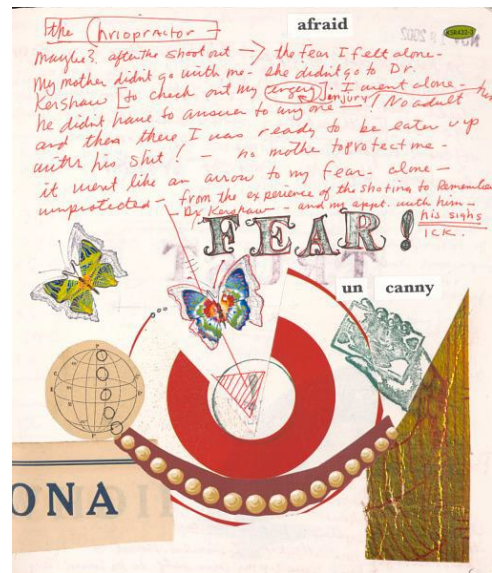 afraid
KSR433-3
the Chriopractor -
maybe? after the shoot out → the fear I felt alone -
My mother didn't go with me - she didn't go to Dr.
Kershaw [to check out my injury] I went alone -
he didn't have to answer to any one - / No adult
and then there I was ready to be eaten up
with his shit! - no mothe to protect me -
it went like an arrow to my fear - alone -
unprotected - from the experience of the shoting to Remember
Dr Kershaw - and my appt. with him -
his sighs
ICK.
FEAR!
un canny
ONA